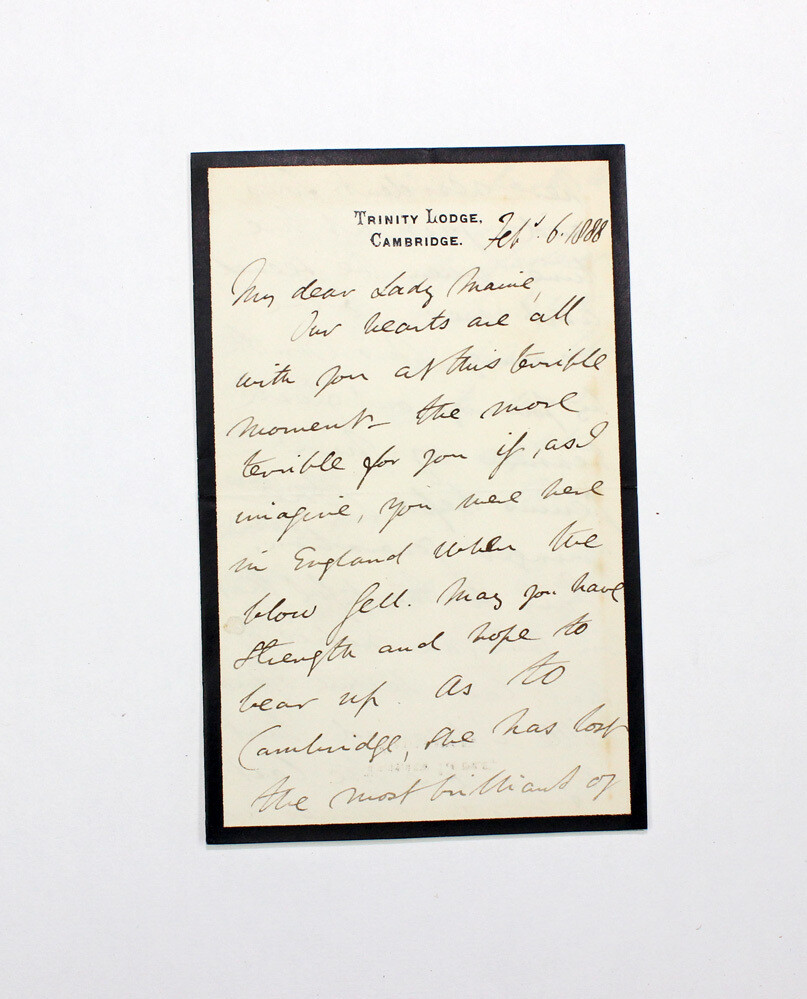 TRINITY LODGE,
CAMBRIDGE. Feby. 6. 1888
My dear Lady Maine,
Our hearts are all
with you at this terrible
moment – the more
terrible for you if, as I
imagine, you were here
in England when the
blow fell. May you have
strength and hope to
bear up. As to
Cambridge, she has lost
the most brilliant of